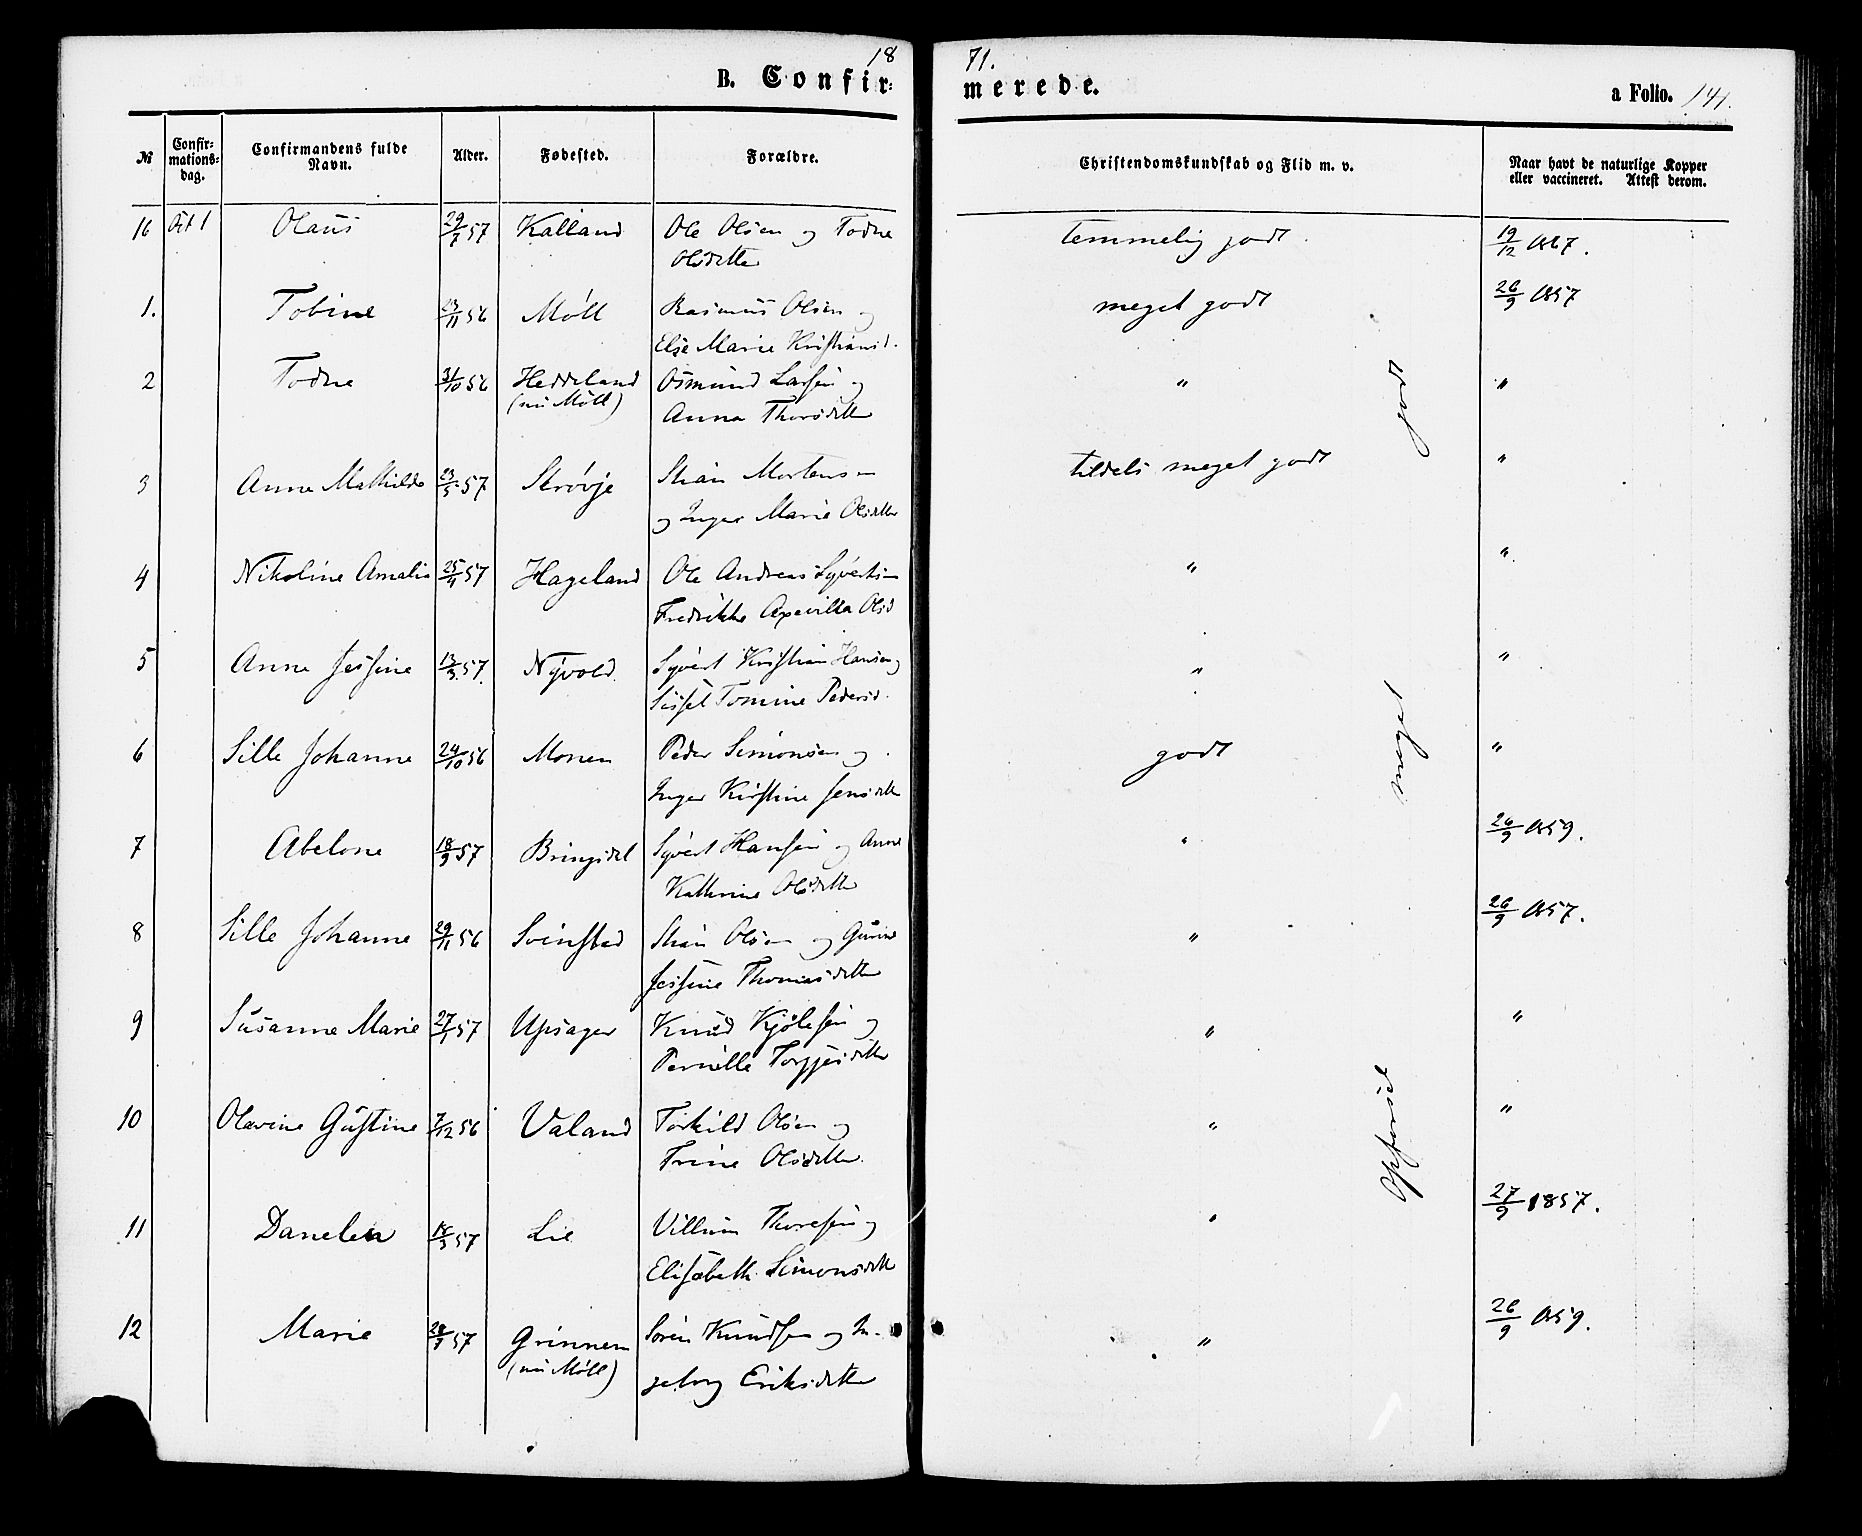 18 71.
B. Confir- merede. a Folio. 141.
№ Confirmations-dag. Confirmandens fulde Navn. Alder. Fødested. Forældre. Christendomskundskab og Flid m. v. Naar havt de naturlige Kopper eller vaccineret. Attest derom.
16 Oct 1 Olaus 29/7 57 Kalland Ole Olsen og Todne temmelig godt 19/12 1867.
Olsdatter
1. Tobine 23/11 56 Møll Rasmus Olsen og meget godt 26/9 1857
Else Marie Kristiansd.
2 Todne 31/10 56 Heddeland Osmund Larsen og " "
(nu Møll) Anna Thorsdatter
3 Anne Mathilde 23/5 57 Strøvje Stian Mortensen tildels meget godt "
og Inger Marie Olsdatter
4 Nikoline Amalie 25/4 57 Hageland Ole Andreas Syvertsen " "
Fredrikke Axevilla Olsd
5 Anne Jessine 13/3 57. Nyvold. Syvert Kristian Hansen og " "
Sissel Tomine Pedersd.
6 Sille Johanne 24/10 56 Monen Peder Simonsen og godt "
Inger Kirstine Jensdatter
7 Abelone 18/9 57 Bringsdal Syvert Hansen og Anne " 26/9 1859.
Kathrine Olsdatter
8 Sille Johanne 29/11 56 Svinstad Stian Olsen og Gurine " 26/9 1857.
Jessine Thomasdatter
9 Susanne Marie 27/1 57 Upsager Knud Kjølesen og " "
Pernille Torgjusdatter
10 Olavine Gustine 7/12 56 Valand Torkild Olsen og " "
Trine Olsdatter.
11 Danelen 16/3 57 Lie Villum Thoresen og " 27/9 1857.
Elisabeth Simonsdatter
12 Marie 28/9 57 Grinnen Søren Knudsen og In- " 26/9 1859.
(nu Møll) geborg Eriksdatter
Opførsel meget godt